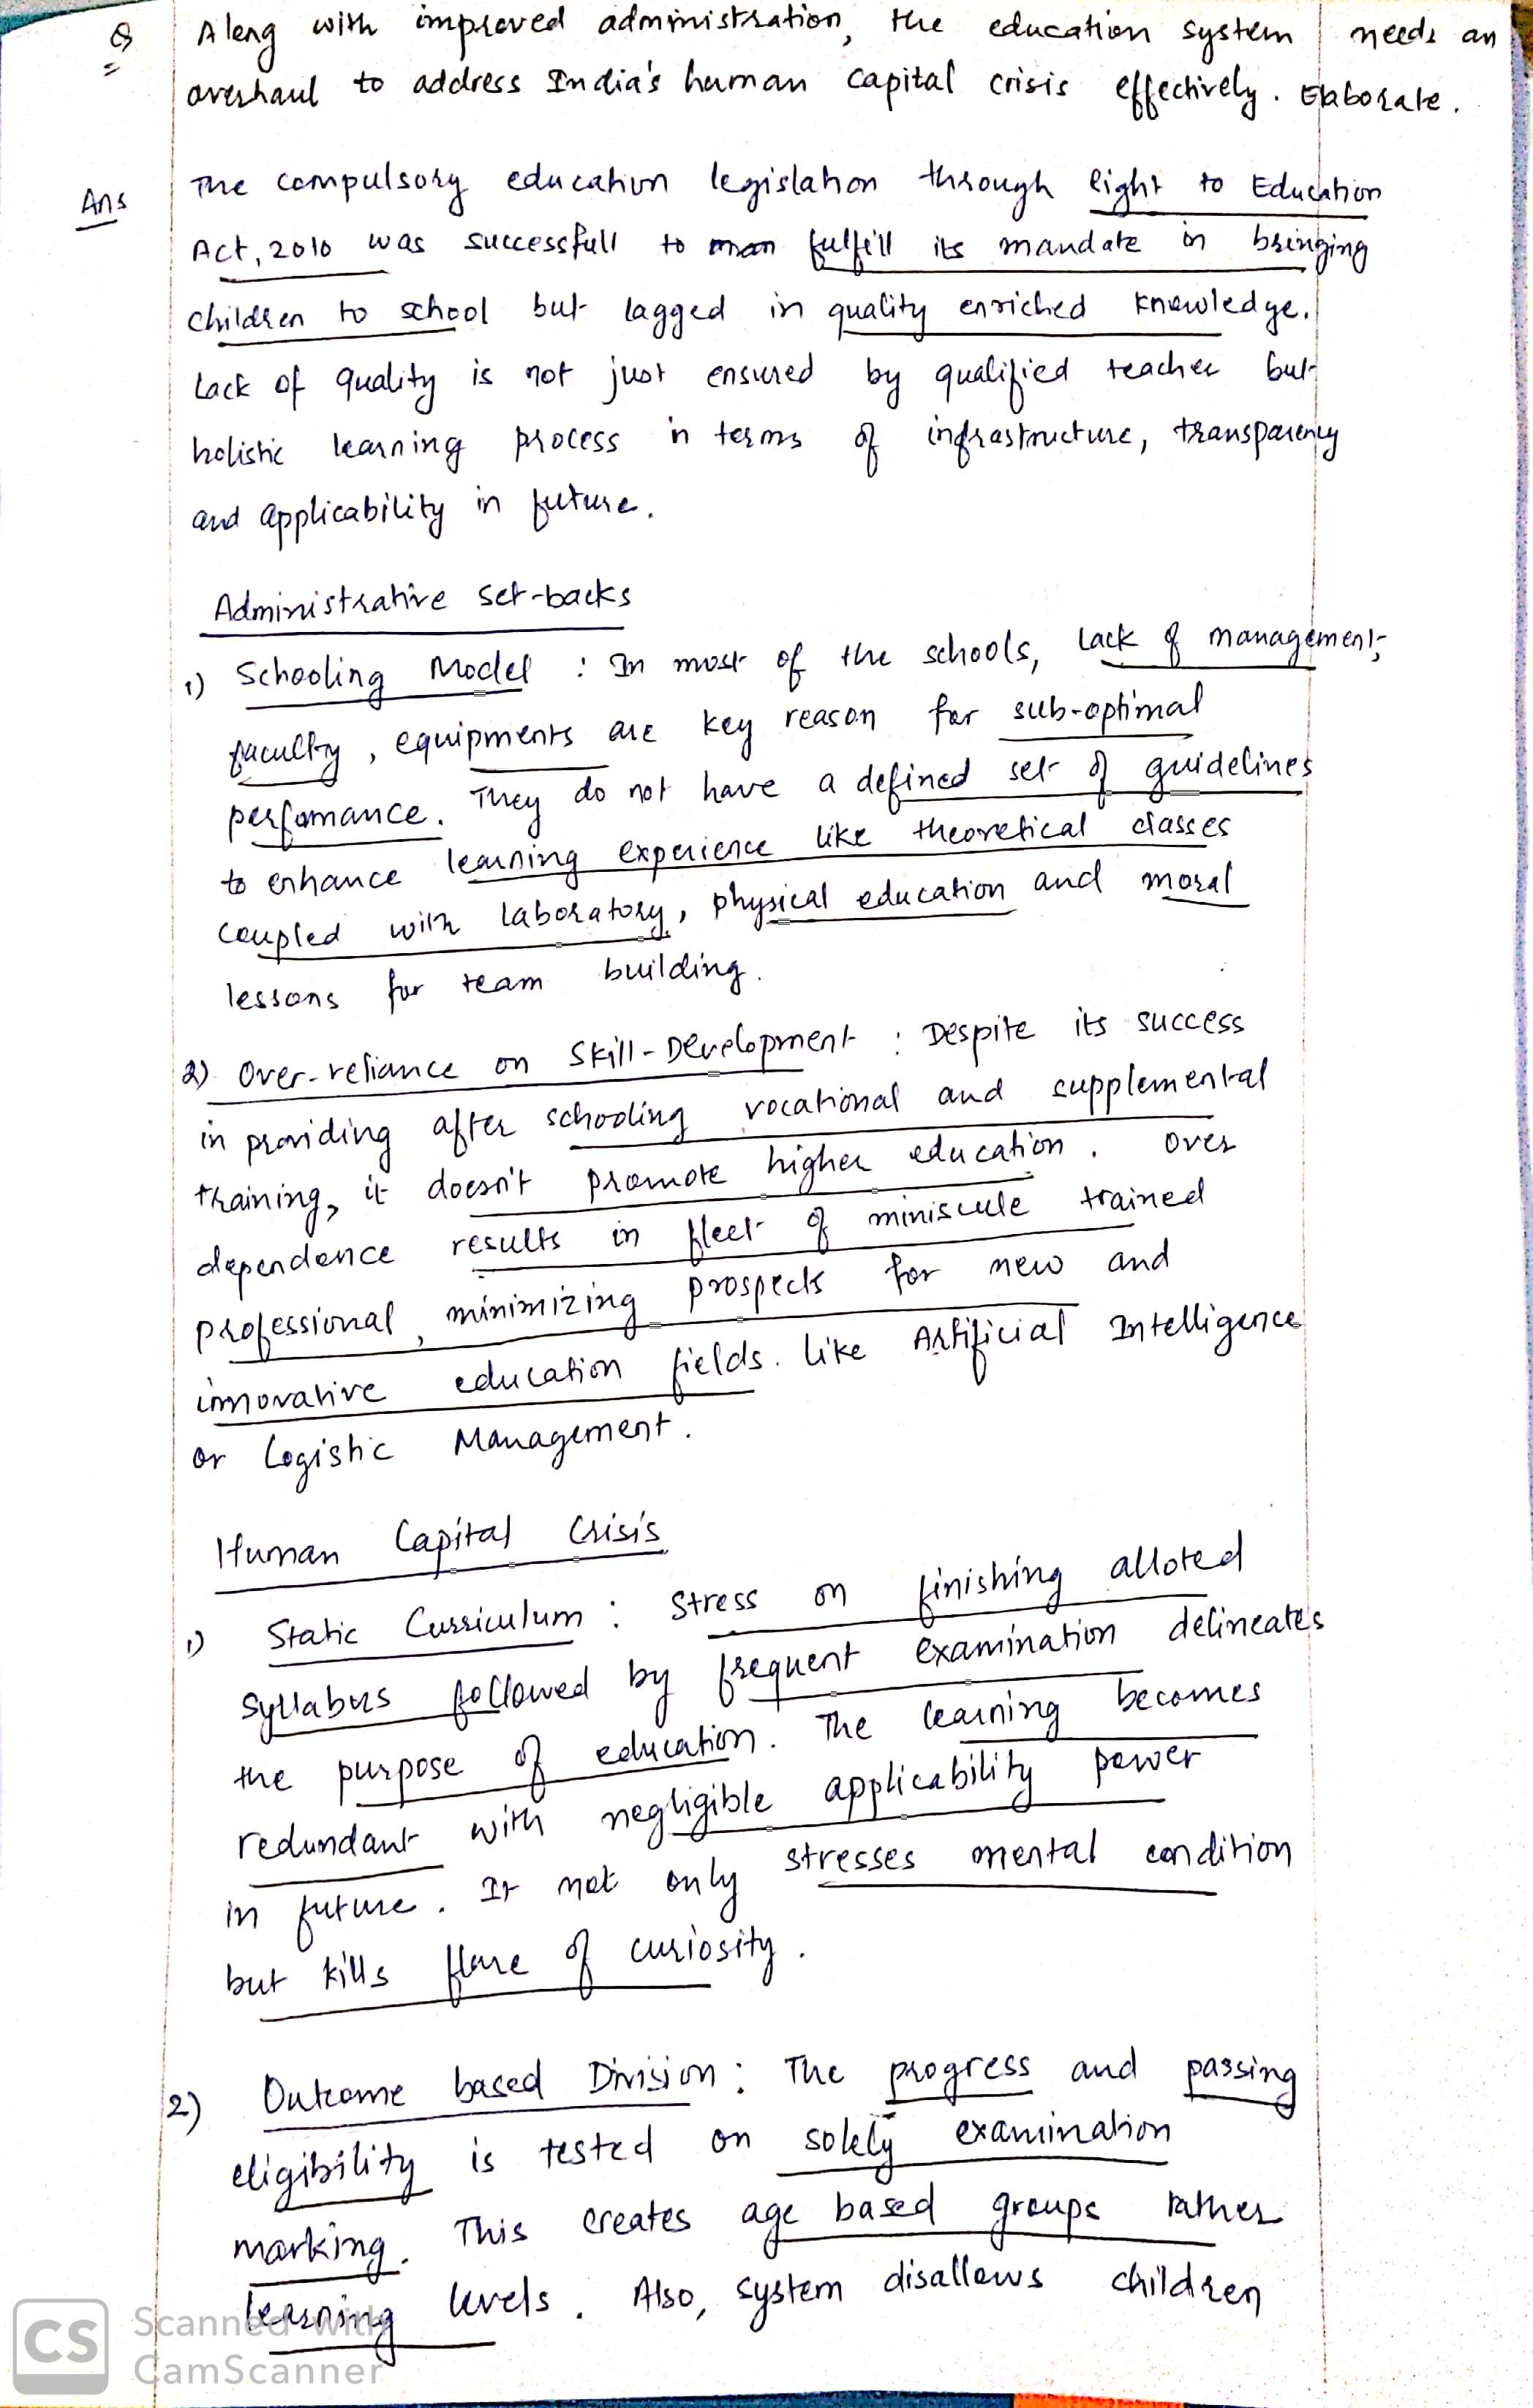 Q Along with improved administration, the education system needs an
overhaul to address India's human capital crisis effectively. Elaborate.
Ans The compulsory education legislation through Right to Education
Act, 2010 was successfull to fulfill its mandate in bringing
children to school but lagged in quality enriched knowledge.
Lack of quality is not just ensured by qualified teacher but
holistic learning process in terms of infrastructure, transparency
and applicability in future.
Administrative set-backs
1) Schooling Model : In most of the schools, lack of management,
faculty, equipments are key reason for sub-optimal
perfomance. They do not have a defined set of guidelines
to enhance learning experience like theoretical classes
coupled with laboratory, physical education and moral
lessons for team building.
2) Over-reliance on Skill-Development : Despite its success
in providing after schooling vocational and supplemental
training, it doesn't promote higher education. Over
dependence results in fleet of miniscule trained
professional, minimizing prospects for new and
innovative education fields. like Artificial Intelligence
or Logistic Management.
Human Capital Crisis
1) Static Curriculum : Stress on finishing alloted
syllabus followed by frequent examination delineates
the purpose of education. The learning becomes
redundant with negligible applicability power
in future. It not only stresses mental condition
but kills flare of curiosity.
2) Outcome based Division : The progress and passing
eligibility is tested on solely examination
marking. This creates age based groups rather
learning levels. Also, system disallows children
CS Scanned with
CamScanner